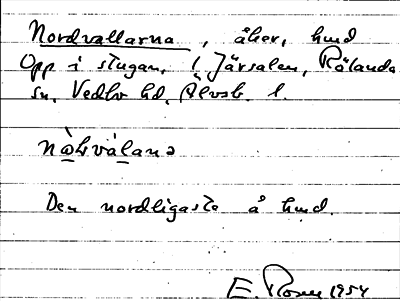 Nordvallarna, åker, hmd
Opp i stugan, l Järsalen, Rölanda
sn, Vedbo hd, Älvsb. l.
nòḷvàḷana
Den nordligaste å hmd.
E. Rosen 1954